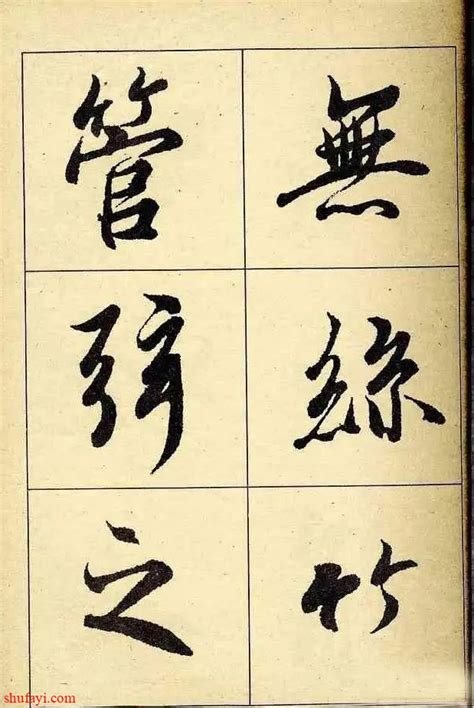 無絲竹
管弦之
shufayi.com